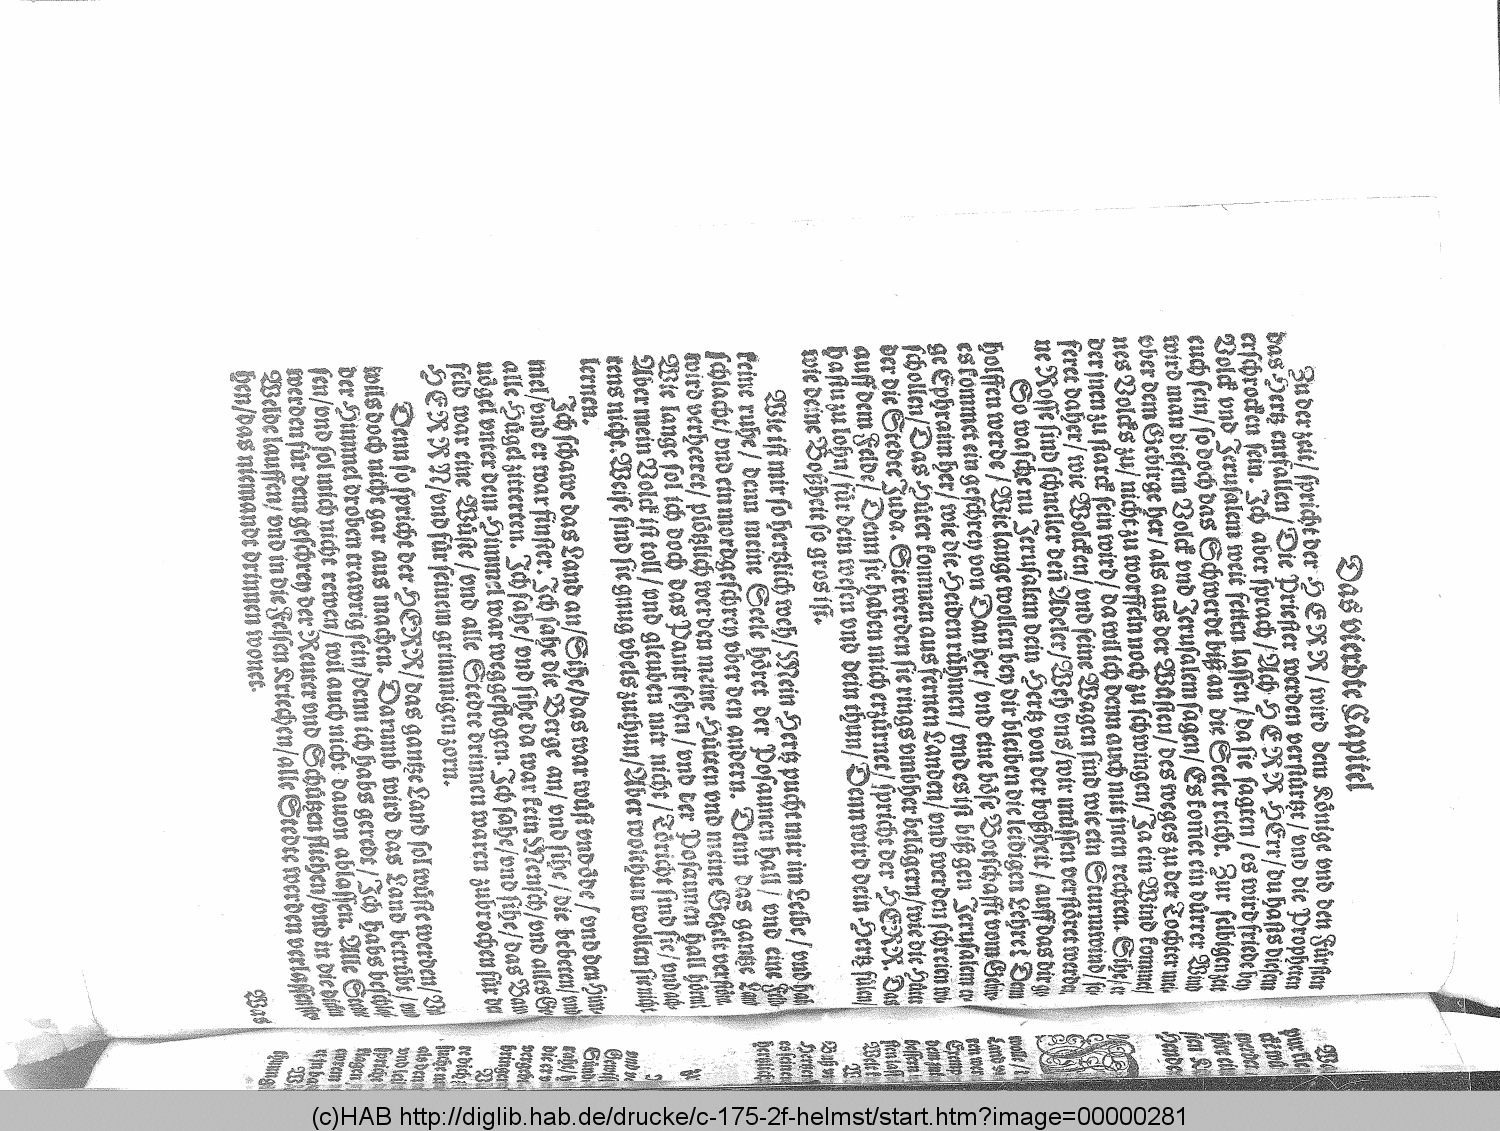 Das vierdte Capitel
ZU der zeit/ spricht der HERR/ wird dem Könige vnd den Fürsten
das Hertz entfallen/ Die Priester werden verstürtzt/ vnd die Propheten
erschrocken sein. Ich aber sprach/ Ach HERR HErr/ du hasts diesem
Volck vnd Jerusalem weit feilen lassen/ da sie sagten/ es wird friede bey
euch sein/ so doch das Schwerdt biß an die Seele reicht. Zur selbigen zeit
wird man diesem Volck vnd Jerusalem sagen/ Es kömet ein dürrer Wind
vber dem Gebirge her/ als aus der Wüsten/ des weges zu der Tochter mei
nes Volcks zu/ nicht zu worffeln noch zu schwingen/ Ja ein Wind kommet
der inen zu starck sein wird/ da wil ich denn auch mit inen rechten. Sihe/ er
feret daher/ wie Wolcken/ vnd seine Wagen sind wie ein Sturmwind/ sei
ne Rosse sind schneller deñ Adeler/ Weh vns/ wir müssen verstöret werden
So wasche nu Jerusalem dein Hertz von der boßheit/ auff das dir ge
holffen werde/ Wie lange wollen bey dir bleiben die leidigen Lehre? Denn
es kommet ein geschrey von Dan her/ vnd eine böse Botschafft vom Gebir
ge Ephraim her/ wie die Heiden rhümen/ vnd es ist biß gen Jerusalem er
schollen/ Das Hüter kommen aus fernen Landen/ vnd werden schreien wi
der die Stedte Juda. Sie werden sie rings vmbher belägern/ wie die Hüter
auff dem Felde/ Denn sie haben mich erzürnet/ spricht der HERR. Das
hastu zu lohn/ für dein wesen vnd dein thun/ Denn wird dein Hertz fülen/
wie deine Boßheit so gros ist.
Wie ist mir so hertzlich weh/ Mein Hertz pucht mir im Leibe/ vnd hab
keine ruhe/ denn meine Seele höret der Posaunen hall/ vnd eine Feld
schlacht/ vnd ein mordgeschrey vber den andern. Denn das gantze Land
wird verheeret/ plötzlich werden meine Hütten vnd meine Gezelt verstöret
Wie lange sol ich doch das Panir sehen/ vnd der Posaunen hall hören
Aber mein Volck ist toll/ vnd gleuben mir nicht/ Töricht sind sie/ vnd ach
tens nicht. Weise sind sie gnug vbels zuthun/ Aber wolthun wollen sie nicht
lernen.
Ich schawe das Land an/ Sihe/ das war wüst vnd öde/ vnd den Him
mel/ vnd er war finster. Ich sahe die Berge an/ vnd sihe/ die bebeten/ vnd
alle Hügel zitterten. Ich sahe/ vnd sihe da war kein Mensch/ vnd alles Ge
vögel vnter dem Himmel war weggeflogen. Ich sahe/ vnd sihe/ das Baw
feld war eine Wüste/ vnd alle Stedte drinnen waren zubrochen für dem
HERRN/ vnd für seinem grimmigen zorn.
Denn so spricht der HERR/ das gantze Land sol wüste werden/ Vnd
wils doch nicht gar aus machen. Darumb wird das Land betrübt/ vnd
der Himmel droben trawrig sein/ denn ich habs geredt/ Ich habs beschlos
sen/ vnd sol mich nicht rewen/ wil auch nicht dauon ablassen. Alle Stedte
werden für dem geschrey der Reuter vnd Schützen fliehen/ vnd in die dicken
Welde lauffen/ vnd in die Felsen kriechen/ alle Stedte werden verlassen ste
hen/ das niemandt drinnen wonet.
(c)HAB http://diglib.hab.de/drucke/c-175-2f-helmst/start.htm?image=00000281